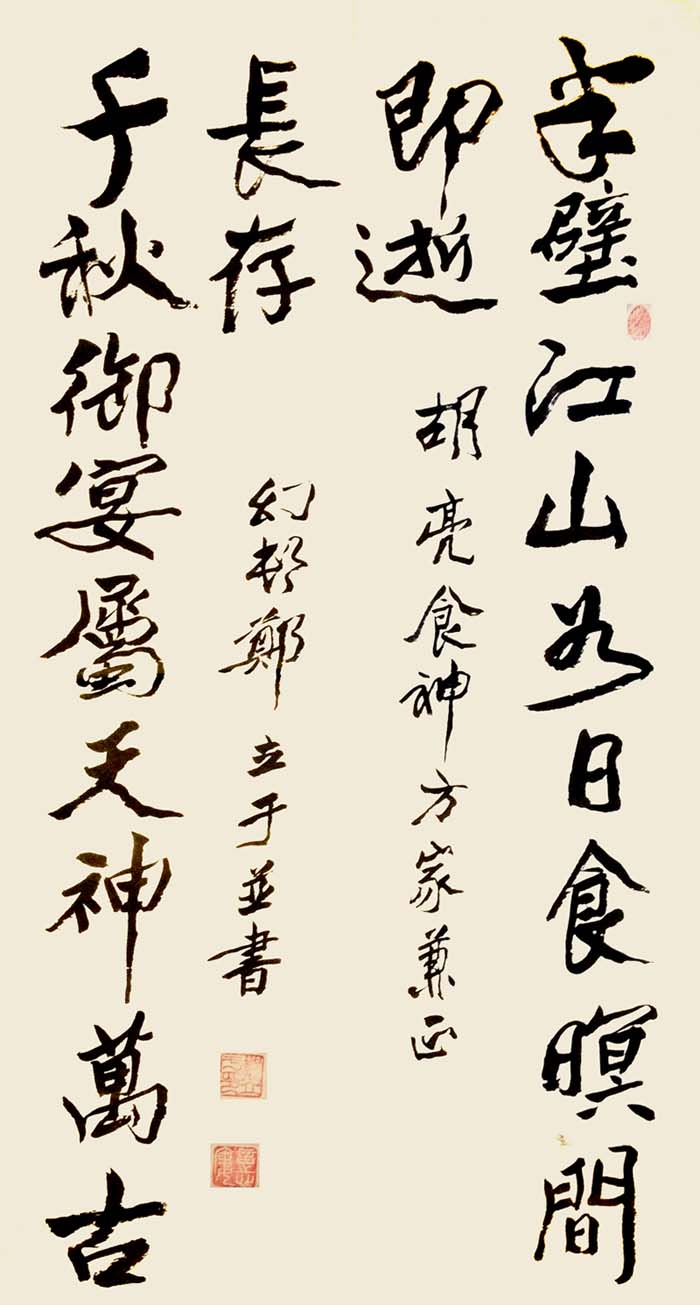 半壁江山若日食暝間
即逝
胡亮食神方家兼正
千秋御宴屬天神萬古
長存
幻邨鄭立于並書